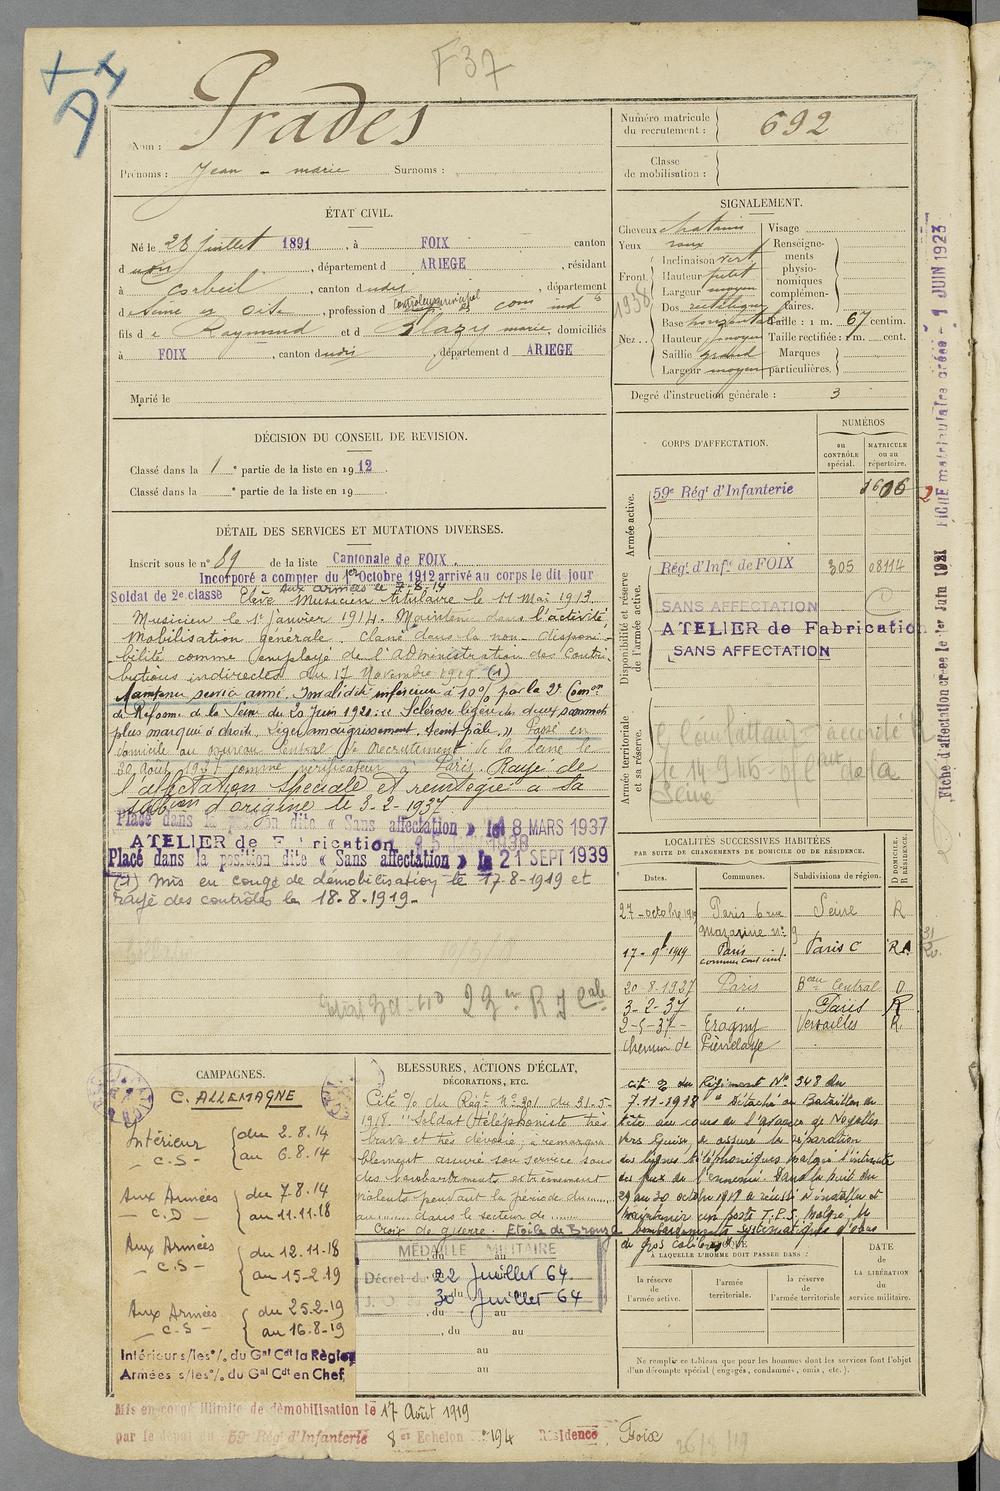 F37
Nom : Prades
Prénoms : Jean - marie Surnoms :
Numéro matricule
du recrutement : 692
Classe
de mobilisation :
ÉTAT CIVIL.
Né le 28 juillet 1891, à FOIX canton
dudit, département d ARIEGE, résidant
à Corbeil, canton dudit, département
d Seine et Oise, profession d
fils de Raymond et d Blazy marie, domiciliés
à FOIX, canton dudit, département d ARIEGE
Marié le
SIGNALEMENT.
Cheveux chatains
Yeux roux
Front Inclinaison vert
Hauteur petit
Largeur moyen
Nez Dos rectiligne
Base horizontale
Hauteur moyen
Saillie grand
Largeur moyen
1938
Visage
Renseigne-
ments
physio-
nomiques
complémen-
taires.
Taille : 1 m. 67 centim.
Taille rectifiée : 1 m. cent.
Marques
particulières.
Degré d'instruction générale : 3
DÉCISION DU CONSEIL DE REVISION.
Classé dans la 1e partie de la liste en 1912
Classé dans la e partie de la liste en 19
CORPS D'AFFECTATION.
NUMÉROS
au
CONTRÔLE
spécial.
MATRICULE
ou au
répertoire.
Armée active.
59e Régt d'Infanterie 1606
2
Disponibilité et réserve
de l'armée active.
Régt d'Infie de FOIX 305 08114
SANS AFFECTATION
ATELIER de Fabrication
SANS AFFECTATION
Armée territoriale
et sa réserve.
Seine
DÉTAIL DES SERVICES ET MUTATIONS DIVERSES.
Inscrit sous le n° 89 de la liste Cantonale de FOIX.
Incorporé a compter du 1er Octobre 1912 arrivé au corps le dit jour
aux armées le 7-8-14
Soldat de 2e classe Elève musicien titulaire le 11 Mai 1913
Musicien le 1er janvier 1914. Maintenu dans l'activité,
Mobilisation générale. Classé dans la non-disponi-
-bilité comme employé de l'administration des Contri-
butions indirectes du 17 Novembre 1919 (1)
Maintenu service armé. Invalidité inférieure à 10% par la 2e Comon
de Réforme de la Seine du 20 Juin 1921 :: Sclérose légère des deux sommets
plus marquée à droite, léger amaigrissement, teint pâle. » Passé en
domicile au bureau Central de Recrutement de la Seine le
20 Août 1937 comme vérificateur à Paris. Rayé de
l'affectation spéciale et réintégré à sa
subdivon d'origine le 3-2-1937
Placé dans la position dite « Sans affectation » le 18 MARS 1937
ATELIER de Fabrication 1938
Placé dans la position dite « Sans affectation » le 21 SEPT 1939
(1) mis en congé de démobilisation le 17-8-1919 et
rayé des contrôles le 18-8-1919-
LOCALITÉS SUCCESSIVES HABITÉES
PAR SUITE DE CHANGEMENTS DE DOMICILE OU DE RÉSIDENCE.
D DOMICILE.
R RÉSIDENCE.
Dates. Communes. Subdivisions de région.
27-octobre 19 Paris 6 rue Seine R
Mazarine n° 9
17-9bre 1919 Paris Paris C RA
20-8-1937 Paris Beau Central D
3-2-37 " Paris R
2-5-37- Eragny Versailles R
chemin de Pierrelaye
CAMPAGNES.
C. ALLEMAGNE
Intérieur du 2.8.14
- C.S - au 6.8.14
Aux Armées du 7.8.14
- C.D - au 11.11.18
Aux Armées du 12.11.18
- C.S - au 15-2-19
Aux Armées du 25.2.19
- C.S - au 16.8-19
Intérieurs/les% du Gal Cdt la Région
Armées s/les% du Gal Cdt en Chef
BLESSURES, ACTIONS D'ÉCLAT,
DÉCORATIONS, ETC.
Cité % du Régt N° 301 du 31-5-
1918. "Soldat téléphoniste très
brave et très dévoué, a remarqua-
blement assuré son service sous
des bombardements extrêmement
violents pendant la période du......
au...... dans le secteur de ......
Croix de guerre. Etoile de Bronze
MÉDAILLE MILITAIRE
Décret du 22 Juillet 64
J. O. du 30 Juillet 64
, du au
, du au
au
au
Cit % du Régiment N° 348 du
7-11-1918 " Détaché au Bataillon de
tête au cours de l'avance de Noyalles
vers Guise, a assuré la réparation
des lignes téléphoniques malgré l'intensité
des feux de l'ennemi. Dans la nuit du
29 au 30 octobre 1918 a réussi à installer et
maintenir un poste T.P.S. malgré le
bombardement systématique d'obus
de gros calibre.
À LAQUELLE L'HOMME DOIT PASSER DANS :
la réserve
de
l'armée active.
l'armée
territoriale.
la réserve
de
l'armée territoriale
DATE
de
LA LIBÉRATION
du
service militaire.
Ne remplir ce tableau que pour les hommes dont les services font l'objet
d'un décompte spécial (engagés, condamnés, omis, etc.).
Mis en congé illimité de démobilisation le 17 Août 1919
par le dépôt du 59e Régt d'Infanterie 8e Echelon N° 194 Résidence Foix
26/8/19
Fiche d'affectation créée le 1er Juin 1921 FICHE matriculaire créée 9 JUIN 1923